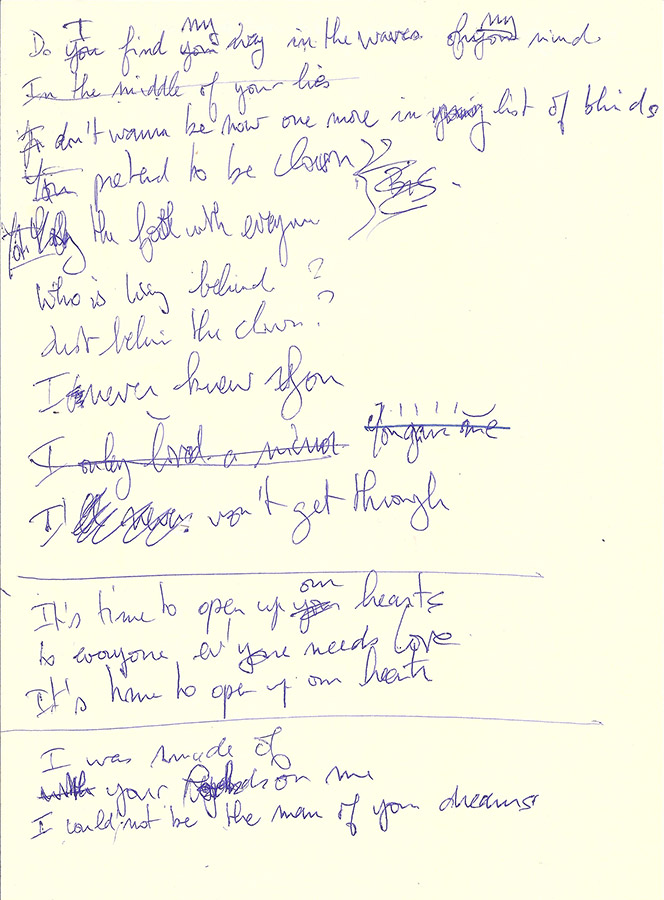 Do I find my way in the waves of my mind
In the middle of your lies
I don't wanna be now one more in your list of blinds
You pretend to be clown
the with everyone
Who is behind?
Just behin the clown?
I never knew you
I only loved a mirror You gave me
I won't get through
It's time to open up our hearts
to everyone needs love
It's time to open up our hearts
I was made of
with your on me
I could not be the man of your dreams